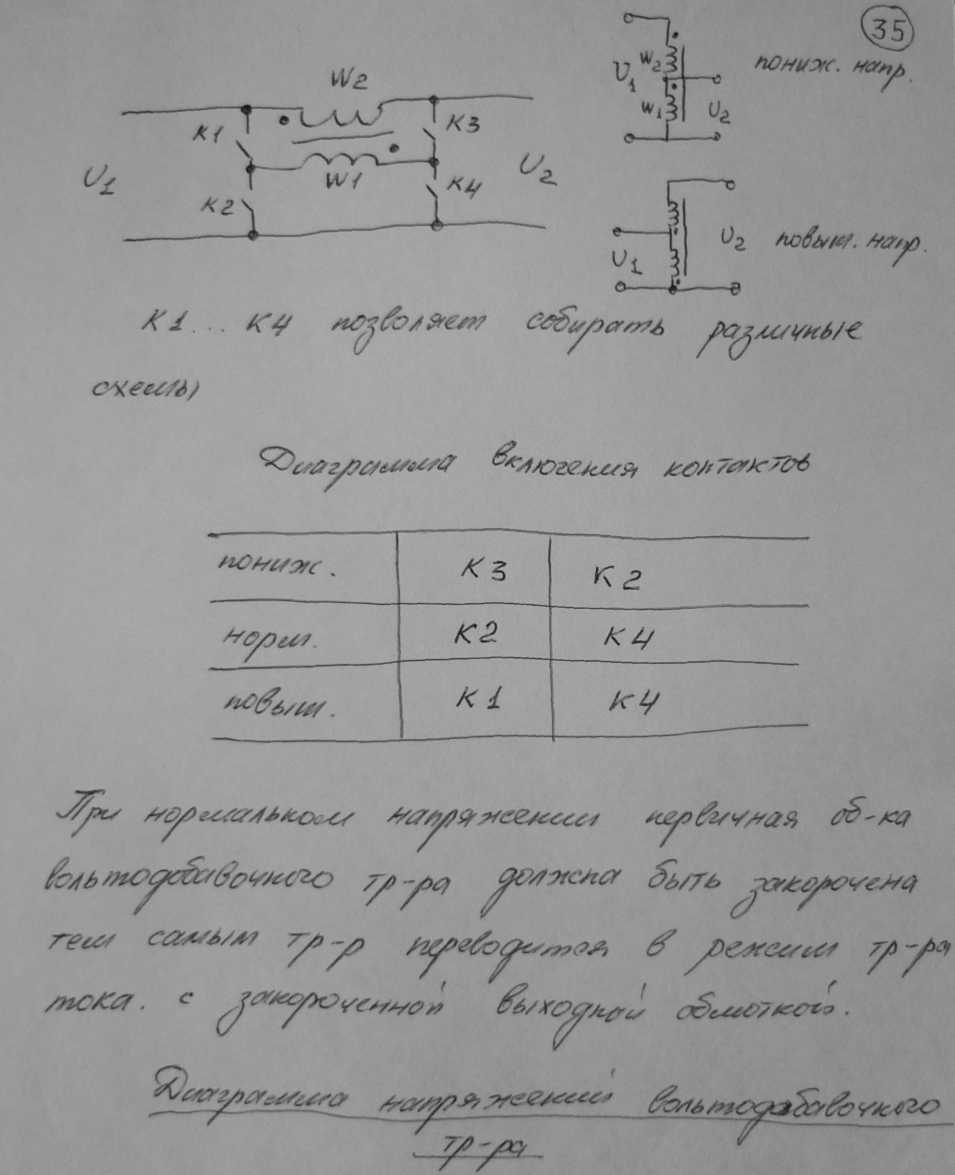 35
W2
K1
K3
U1
W1
U2
K2
K4
U1
W2
W1
U2
пониж. напр.
U1
U2
повыш. напр.
K1... K4 позволяет собирать различные
схемы
Диаграмма включения контактов
пониж. K3 K2
норм. K2 K4
повыш. K1 K4
При нормальном напряжении первичная об-ка
вольтодобавочного тр-ра должна быть закорочена
тем самым тр-р переводится в режим тр-ра
тока. с закороченной выходной обмоткой.
Диаграмма напряжений вольтодобавочного
тр-ра